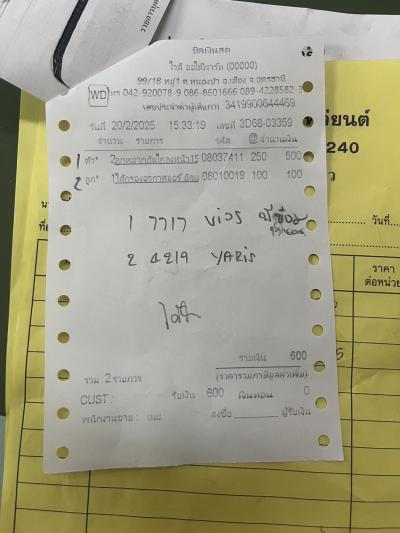 บิลเงินสด
ไวดี ออโต้พาร์ท (00000)
99/18 หมู่1 ต.หนองบัว อ.เมือง จ.อุดรธานี
WD โทร 042-920078-9 086-8601666 089-4228582-3
เลขประจำตัวผู้เสียภาษี 3419900644469
วันที่ 20/2/2025 15:33:19 เลขที่ 3D68-03359
จำนวน รายการ รหัส @ จำนวนเงิน
1 ตัว* 2 ลูกหมากกันโคลงหน้า15 08037411 250 500
2 ลูก* 1 ไส้กรองอากาศแอร์ 08010019 100 100
1 7717 VIOS
2 4219 YARIS
รวมเงิน 600
รวม 2 รายการ (ราคารวมภาษีมูลค่าเพิ่ม)
CUST : รับเงิน 600 เงินทอน 0
พนักงานขาย : เนย ลงชื่อ ผู้รับเงิน
ยนต์
240
ว
วันที่
ราคา
ต่อหน่วย